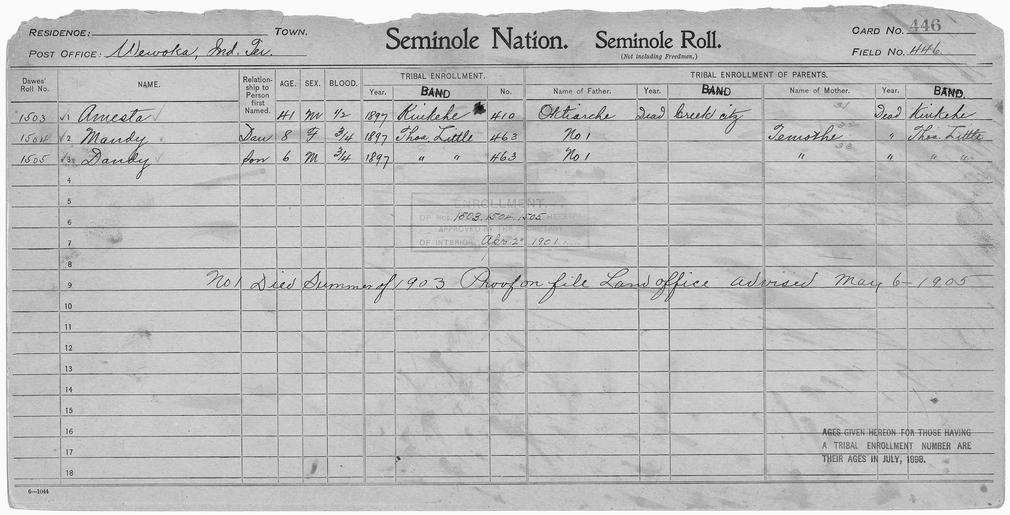 RESIDENCE: TOWN. Seminole Nation. Seminole Roll. CARD NO. 446
POST OFFICE: Wewoka, Ind. Ter. (Not including Freedmen.) FIELD NO. 446
Dawes' Roll No. NAME. Relationship to Person first Named. AGE. SEX. BLOOD. TRIBAL ENROLLMENT. TRIBAL ENROLLMENT OF PARENTS.
Year. BAND No. Name of Father. Year. BAND Name of Mother. Year. BAND
1503 1 Amesta 41 M 1/2 1897 Kinkehe 410 Oktiarche Dead Creek city 31 Dead Kinkehe
1504 2 Mandy Dau 8 F 3/4 1897 Thos. Little 463 No 1 Temothe " Thos. Little
1505 3 Dandy Son 6 M 3/4 1897 " " 463 No 1 " " " "
4
5
ENROLLMENT
6
OF NOS. 1503, 1504, 1505 HEREON
APPROVED BY THE SECRETARY
7
OF INTERIOR Apr 2" 1901
8
9 No 1 Died Summer of 1903 Proof on file Land office advised May 6 - 1905
10
11
12
13
14
15
16 AGES GIVEN HEREON FOR THOSE HAVING
17 A TRIBAL ENROLLMENT NUMBER ARE
THEIR AGES IN JULY, 1898.
18
6-1044